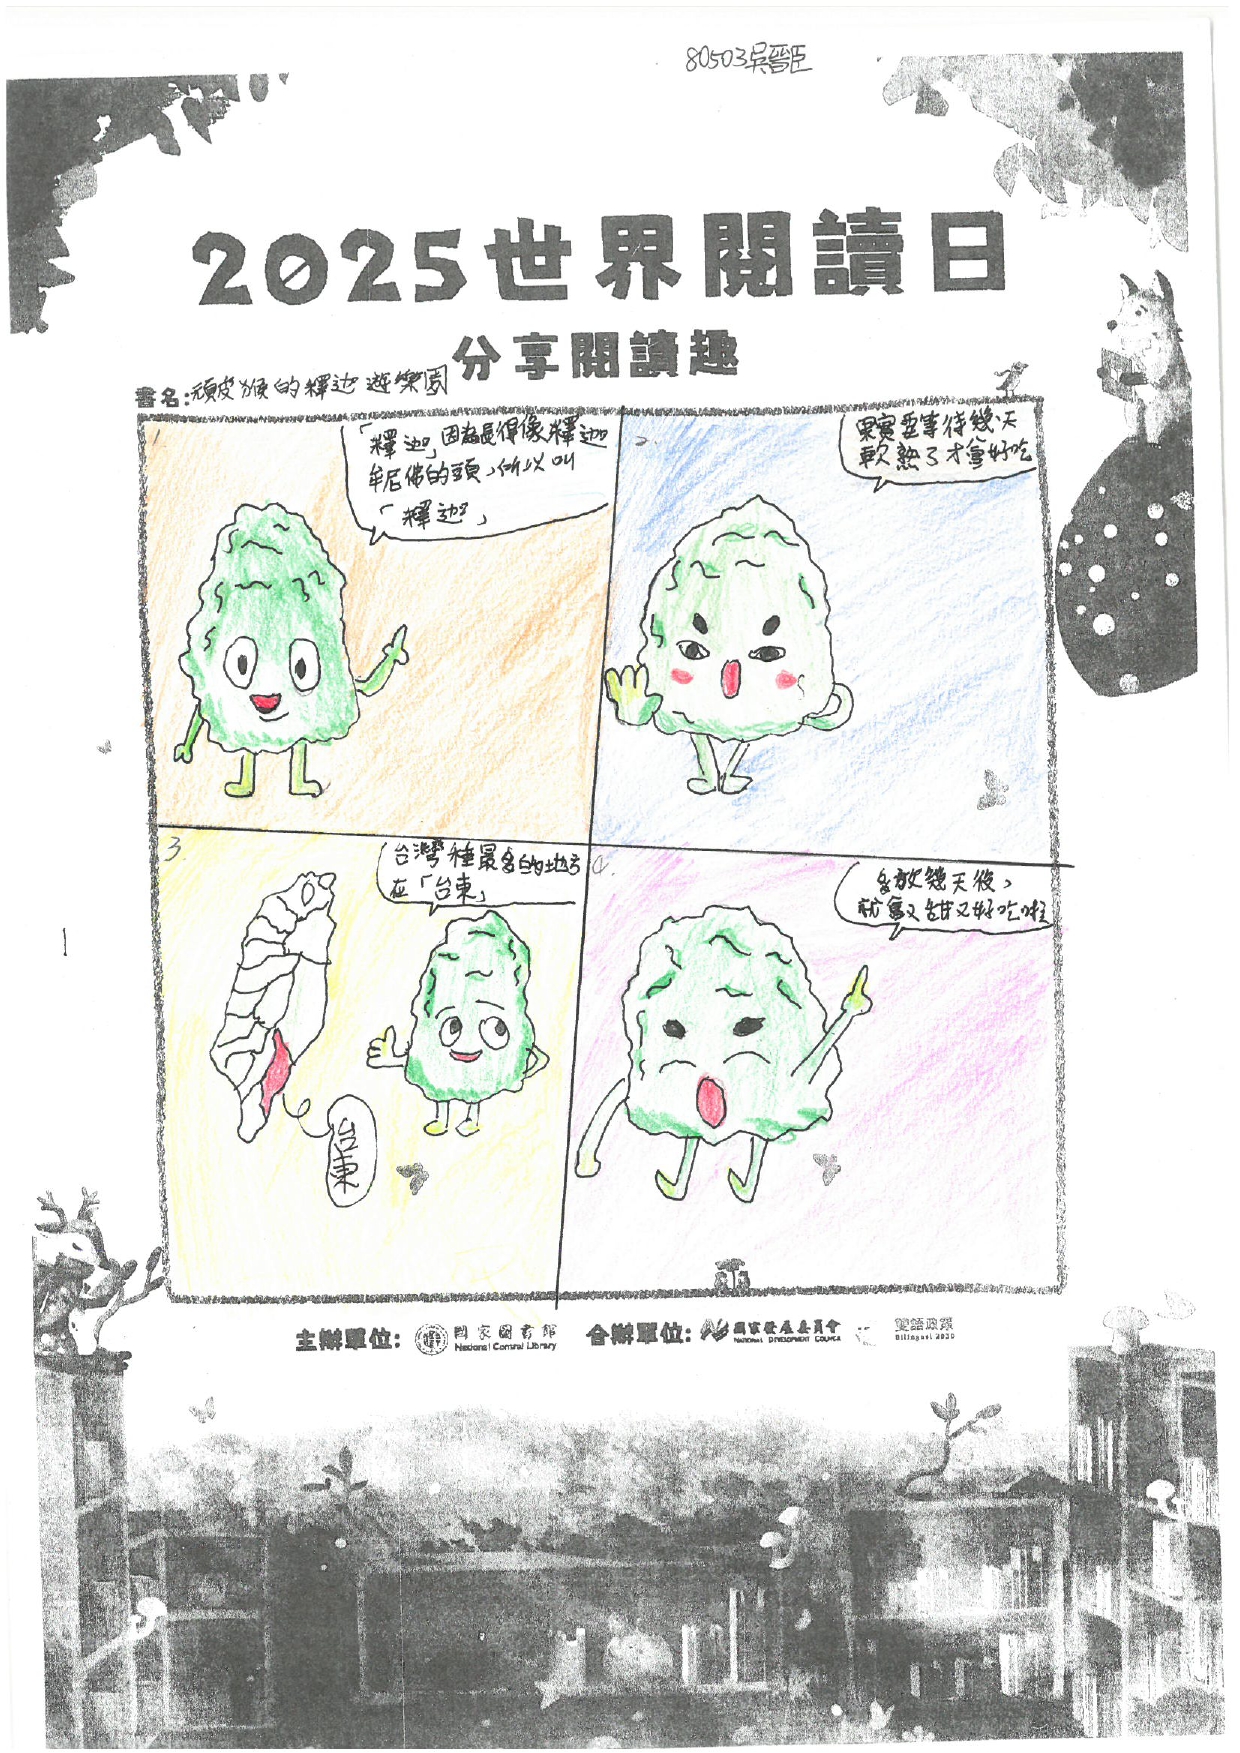 80503吳晉臣
2025世界閱讀日
分享閱讀趣
書名:頑皮猴的釋迦遊樂園
1.
「釋迦」因為長得像釋迦
牟尼佛的頭,所以叫
「釋迦」
2.
果實要等待幾天
軟熟了才會好吃
3.
台灣種最多的地方
在「台東」
台東
4.
多放幾天後,
就會又甜又好吃啦
主辦單位: 國家圖書館 National Central Library 合辦單位: 國家發展委員會 NATIONAL DEVELOPMENT COUNCIL 雙語政策 Bilingual 2030